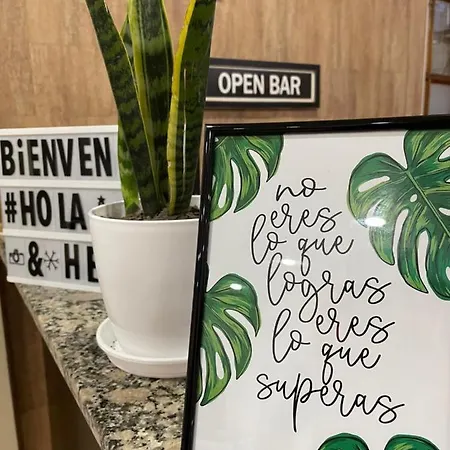 OPEN BAR
BiENVEN
#HOLA*
&
HE
no
eres
lo que
logras
eres
lo que
superas